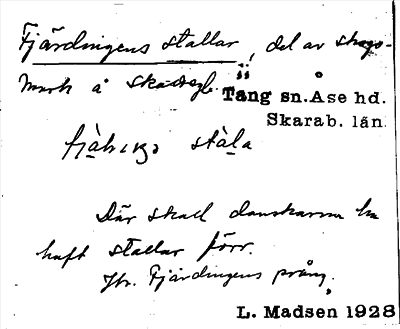 Fjärdingens stallar, del av skogs-
mark å
Täng sn. Åse hd.
Skarab. län.
Där skall danskarna ha
haft stallar förr.
Jfr. Fjärdingens prång.
L. Madsen 1928